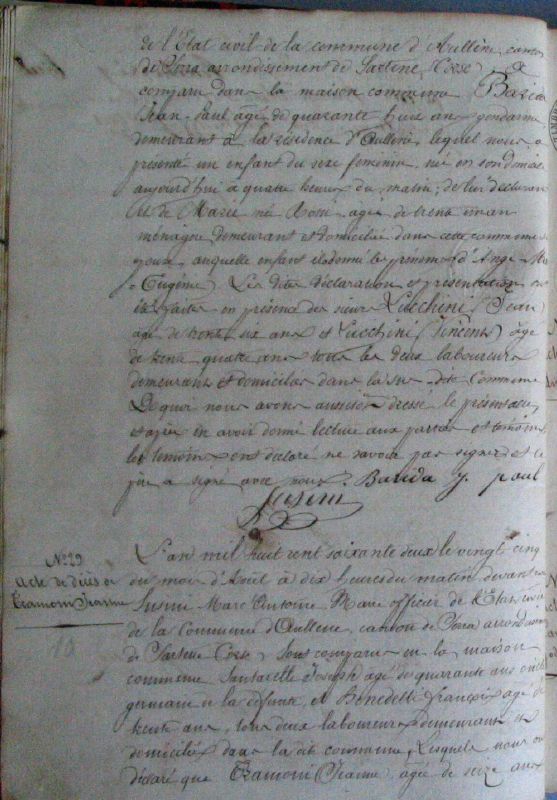 de l'Etat civil de la commune d'Aullene, canton
de Serra arrondissement de Sartène (Corse) a
comparu dans la maison commune
Jean-Paul âgé de quarante huit ans gendarme
demeurant à la résidence d'Aullene lequel nous a
présenté un enfant du sexe feminin, né en son domicile
aujourd'hui à quatre heures du matin, de lui déclarant
et de Marie née Rossi, agée de trente un an
ménagère, demeurant et domiciliée dans cette commune
épouse, auquelle enfant il a donné le prénom d'Ange
Eugénie. Les dites déclaration et présentation
faites en présence des sieurs Lucchini (Jean)
âgé de trente six ans et Lucchini (Vincent) âgé
de trente quatre ans tous les deux laboureurs
demeurant et domiciliés dans la sus-dite commune
De quoi nous avons aussitôt dressé le présent acte
et après en avoir donné lecture aux parties et temoins
les temoins ont déclaré ne savoir pas signer et le
père a signé avec nous. Bazida J. paul
Susini
N° 29
acte de décès de
Tramoni Jeanne
L'an mil huit cent soixante deux le vingt cinq
du mois d'Aout à dix heures du matin devant nous
Susini Marc Antoine, Maire officier de l'Etat civil
de la Commune d'Aullene, canton de Serra arrond
de Sartene Corse, sont comparus en la maison
commune Santarelli Joseph agé de quarante ans oncle
germain à la défunte, et Benedetti françois agé de
trente ans, tous deux laboureurs demeurant et
domiciliés dans la dite commune, Lesquels nous ont
déclaré que Tramoni Jeanne, agée de seize ans